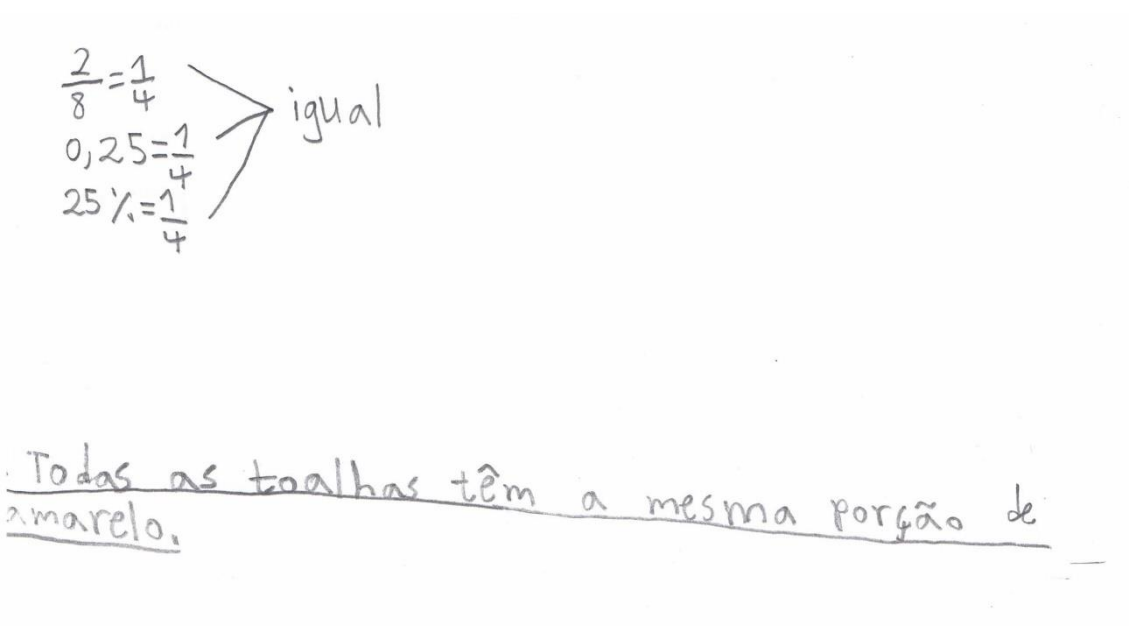 2/8 = 1/4
igual
0,25 = 1/4
25% = 1/4
Todas as toalhas têm a mesma porção de
amarelo.